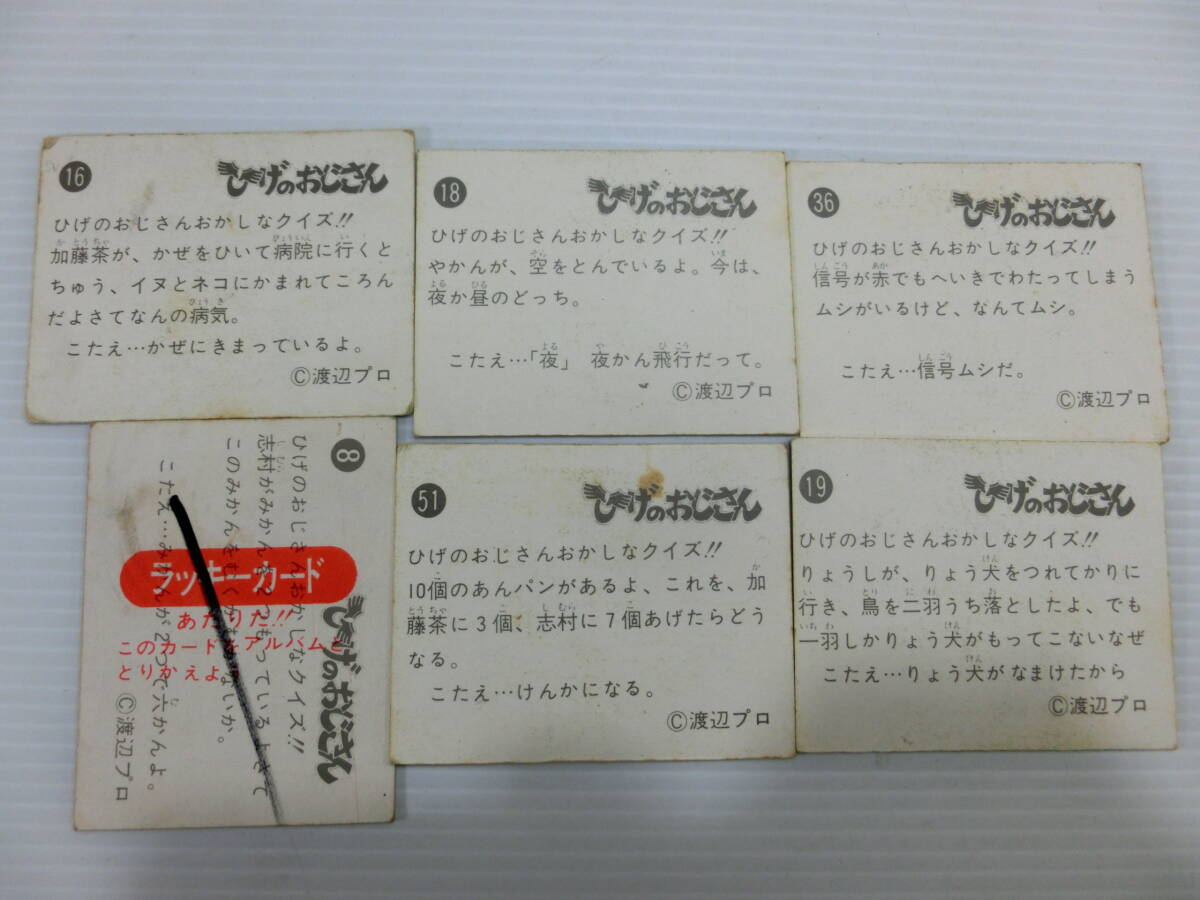 16
ひげのおじさん
ひげのおじさんおかしなクイズ!!
加藤茶が、かぜをひいて病院に行くと
ちゅう、イヌとネコにかまれてころん
だよさてなんの病気。
こたえ…かぜにきまっているよ。
©渡辺プロ
18
ひげのおじさん
ひげのおじさんおかしなクイズ!!
やかんが、空をとんでいるよ。今は、
夜か昼のどっち。
こたえ…「夜」 夜かん飛行だって。
©渡辺プロ
36
ひげのおじさん
ひげのおじさんおかしなクイズ!!
信号が赤でもへいきでわたってしまう
ムシがいるけど、なんてムシ。
こたえ…信号ムシだ。
©渡辺プロ
8
ひげのおじさん
ひげのおじさんおかしなクイズ!!
志村がみかんを2つもっているよさて
このみかんをむくかむかないか。
こたえ…みかんが2つで六かんよ。
©渡辺プロ
ラッキーカード
あたりだ!!
このカードをアルバムと
とりかえよ
51
ひげのおじさん
ひげのおじさんおかしなクイズ!!
10個のあんパンがあるよ、これを、加
藤茶に3個、志村に7個あげたらどう
なる。
こたえ…けんかになる。
©渡辺プロ
19
ひげのおじさん
ひげのおじさんおかしなクイズ!!
りょうしが、りょう犬をつれてかりに
行き、鳥を二羽うち落としたよ、でも
一羽しかりょう犬がもってこないなぜ
こたえ…りょう犬がなまけたから
©渡辺プロ